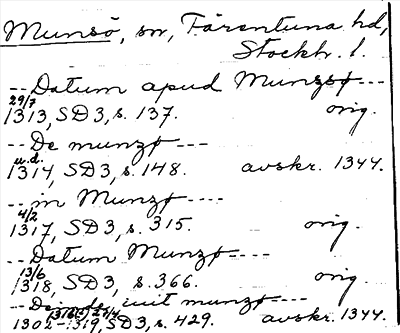 Munsö, sn, Färentuna hd,
Stockh. l.
-- Datum apud Munzsø ---
29/7
1313, SD 3, s. 137. orig.
-- De munzø ---
u.d.
1314, SD 3, s. 148. avskr. 1344.
-- in Munzø ----
4/2
1317, SD 3, s. 315. orig.
-- Datum Munzø ---
13/6
1318, SD 3, s. 366. orig.
-- Deinde iuit munzø ----
1302-1319, SD 3, s. 429. avskr. 1344.